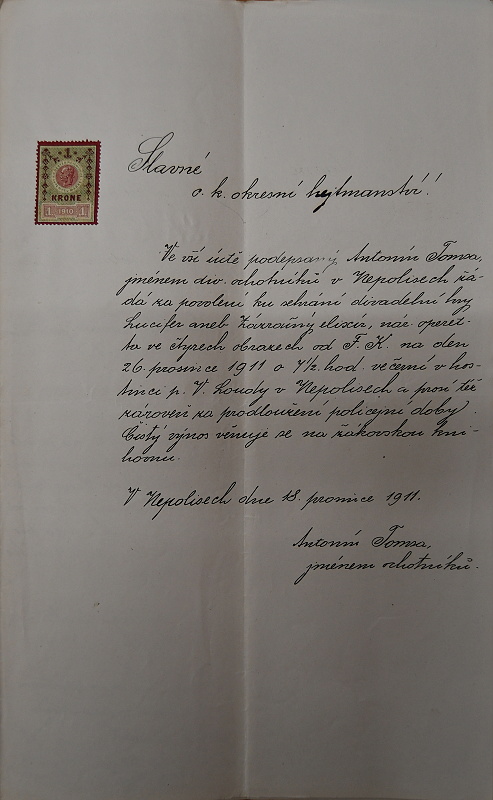 1
KRONE
1 1910 1
Slavné
c. k. okresní hejtmanství!
Ve vší úctě podepsaný Antonín Tomsa,
jménem div. ochotníků v Nepolisech žá-
dá za povolení ku sehrání divadelní hry
Lucifer aneb Zázračný elixír, nár. operet-
ta ve čtyrech obrazech od F. K. na den
26. prosince 1911 o 7½ hod. večerní v hos-
tinci p. V. Loudy v Nepolisech a prosí též
zároveň za prodloužení policejní doby.
Čistý výnos věnuje se na žákovskou kni-
hovnu.
V Nepolisech dne 18. prosince 1911.
Antonín Tomsa,
jménem ochotníků.